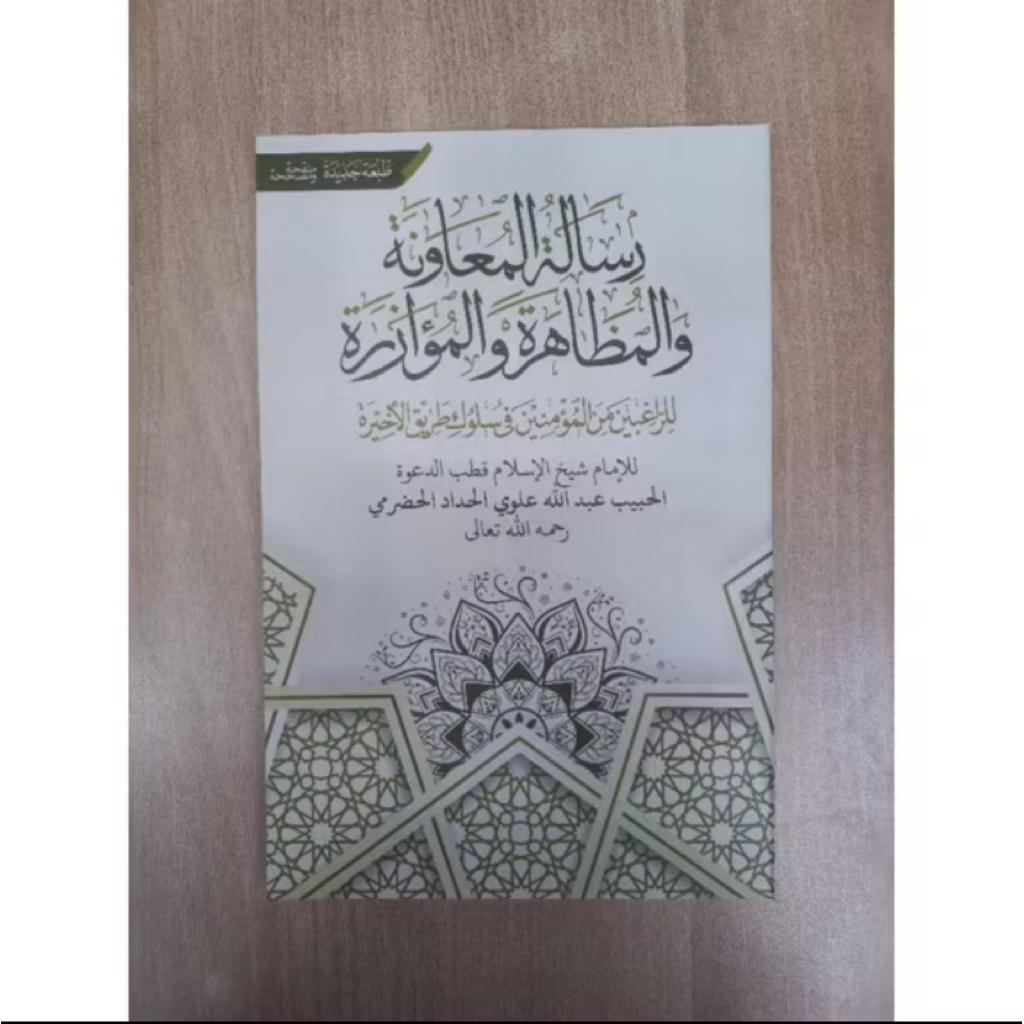 طبعة جديدة منقحة ومصححة
رِسَالَةُ المُعَاوَنَة
وَالمُظَاهَرَةِ وَالمُؤَازَرَة
لِلرَّاغِبِينَ مِنَ المُؤْمِنِينَ فِي سُلُوكِ طَرِيقِ الآخِرَة
للإمام شيخ الإسلام قطب الدعوة
الحبيب عبد الله علوي الحداد الحضرمي
رحمه الله تعالى